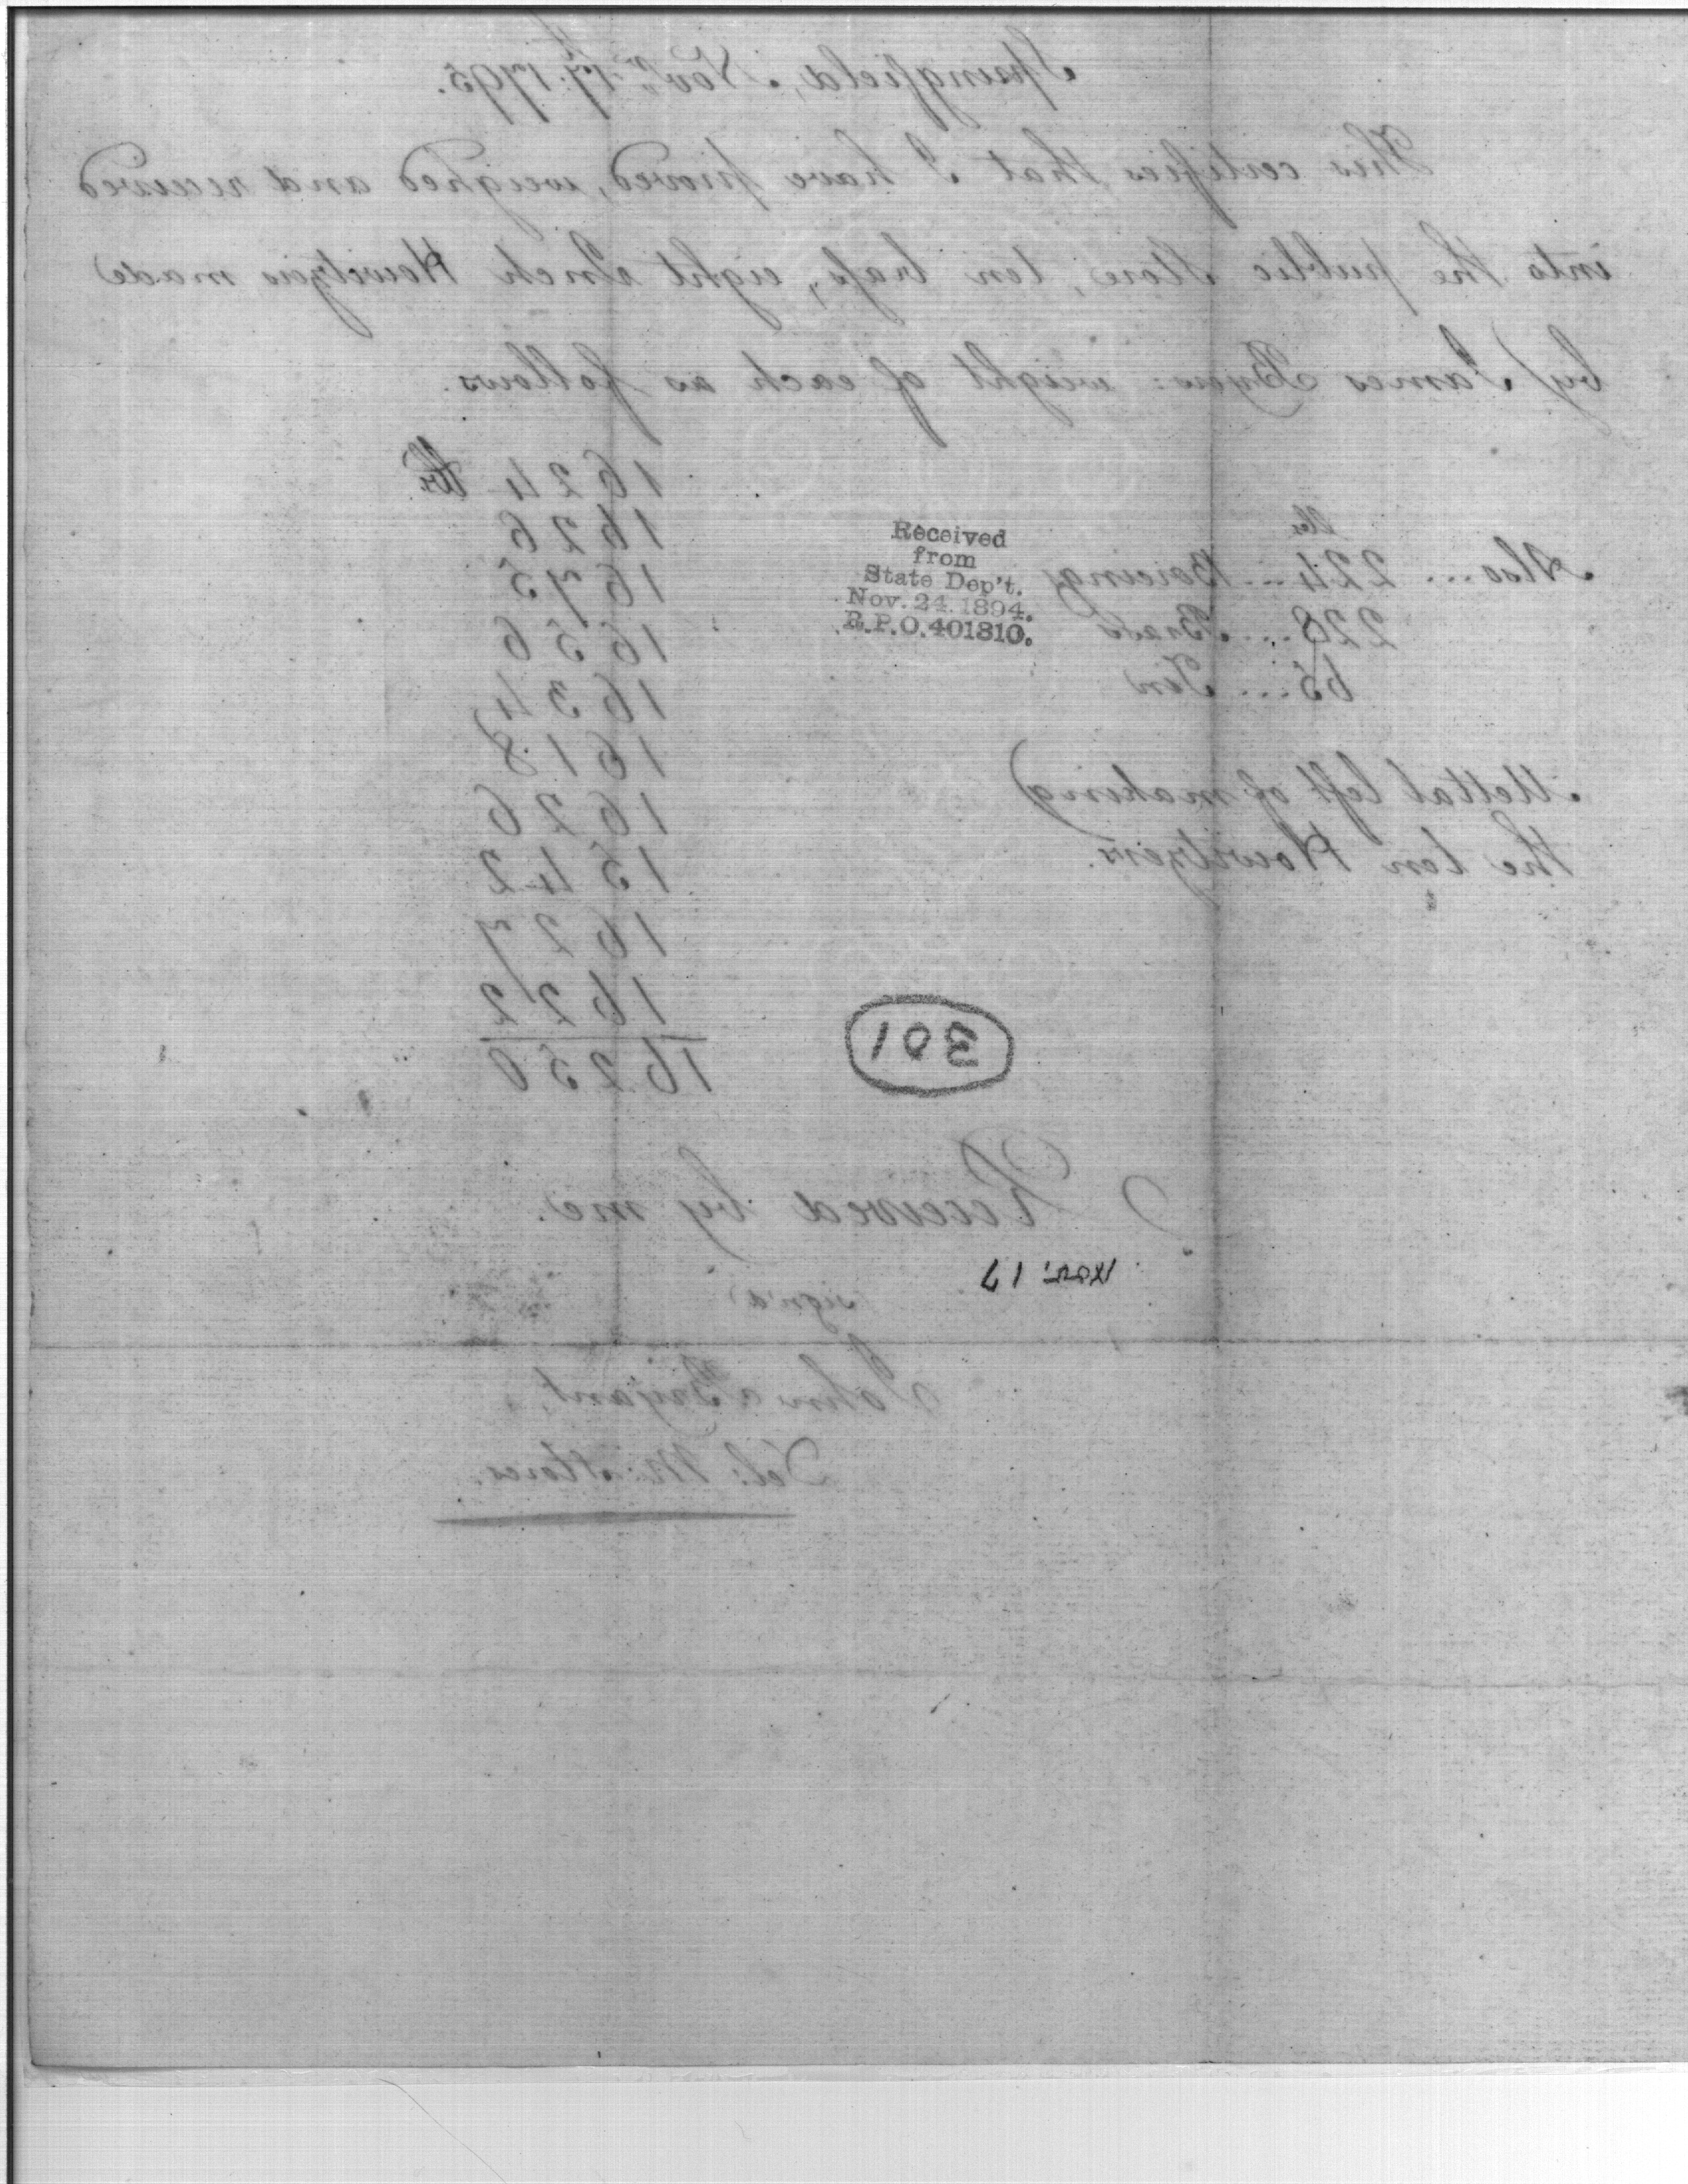 Springfield, Nov.r 17.th 1795.
This certifies that I have proved, weighed and received
into the public Store, ten brass, eight Inch Howitzers made
by James Byers: weight of each as follows.
1624 lbs.
1626
1675
1656
1634
1618
1626
1542
1627
1622
16250
lbs
Also ... 224 ... Boreings
228 ... Brass
65 ... Tin
Mettal left of making
the ten Howitzers.
Received
from
State Dep't.
Nov. 24. 1894.
R.P.O. 401310.
301
Received by me.
Nov. 17
sign'd
John Bryant,
Del: M: Stores.